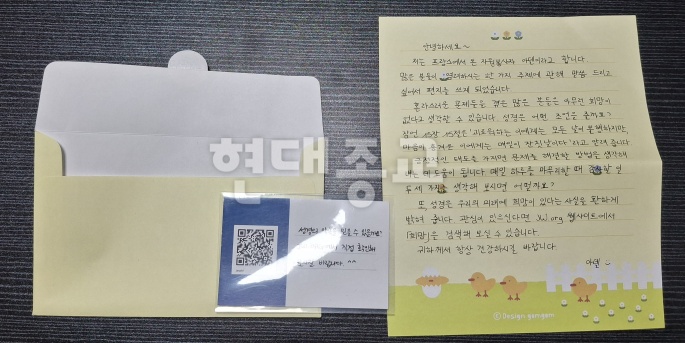 안녕하세요~
저는 프랑스에서 온 자원봉사자 아델이라고 합니다.
많은 분들이 염려하시는 한 가지 주제에 관해 말씀 드리고
싶어서 편지를 쓰게 되었습니다.
혼란스러운 문제들을 겪은 많은 분들은 아무런 희망이
없다고 생각할 수 있습니다. 성경은 어떤 조언을 줄까요?
잠언 15장 15절은 "괴로워하는 이에게는 모든 날이 불행하지만,
마음이 즐거운 이에게는 매일이 잔칫날이다"라고 알려 줍니다
긍정적인 태도를 가지면 문제를 해결할 방법을 생각해
내는 데 도움이 됩니다. 매일 하루를 마무리할 때
두세 가지를 생각해 보시면 어떨까요?
또, 성경은 우리의 미래에 희망이 있다는 사실을 환하게
밝혀 줍니다. 관심이 있으시다면 jw.org 웹사이트에서
「희망」을 검색해 보실 수 있습니다.
귀하께서 항상 건강하시길 바랍니다.
아델
©Design gomgom
성경이 수 있을까요?
직접 확인해
바랍니다. ^^
현대종교